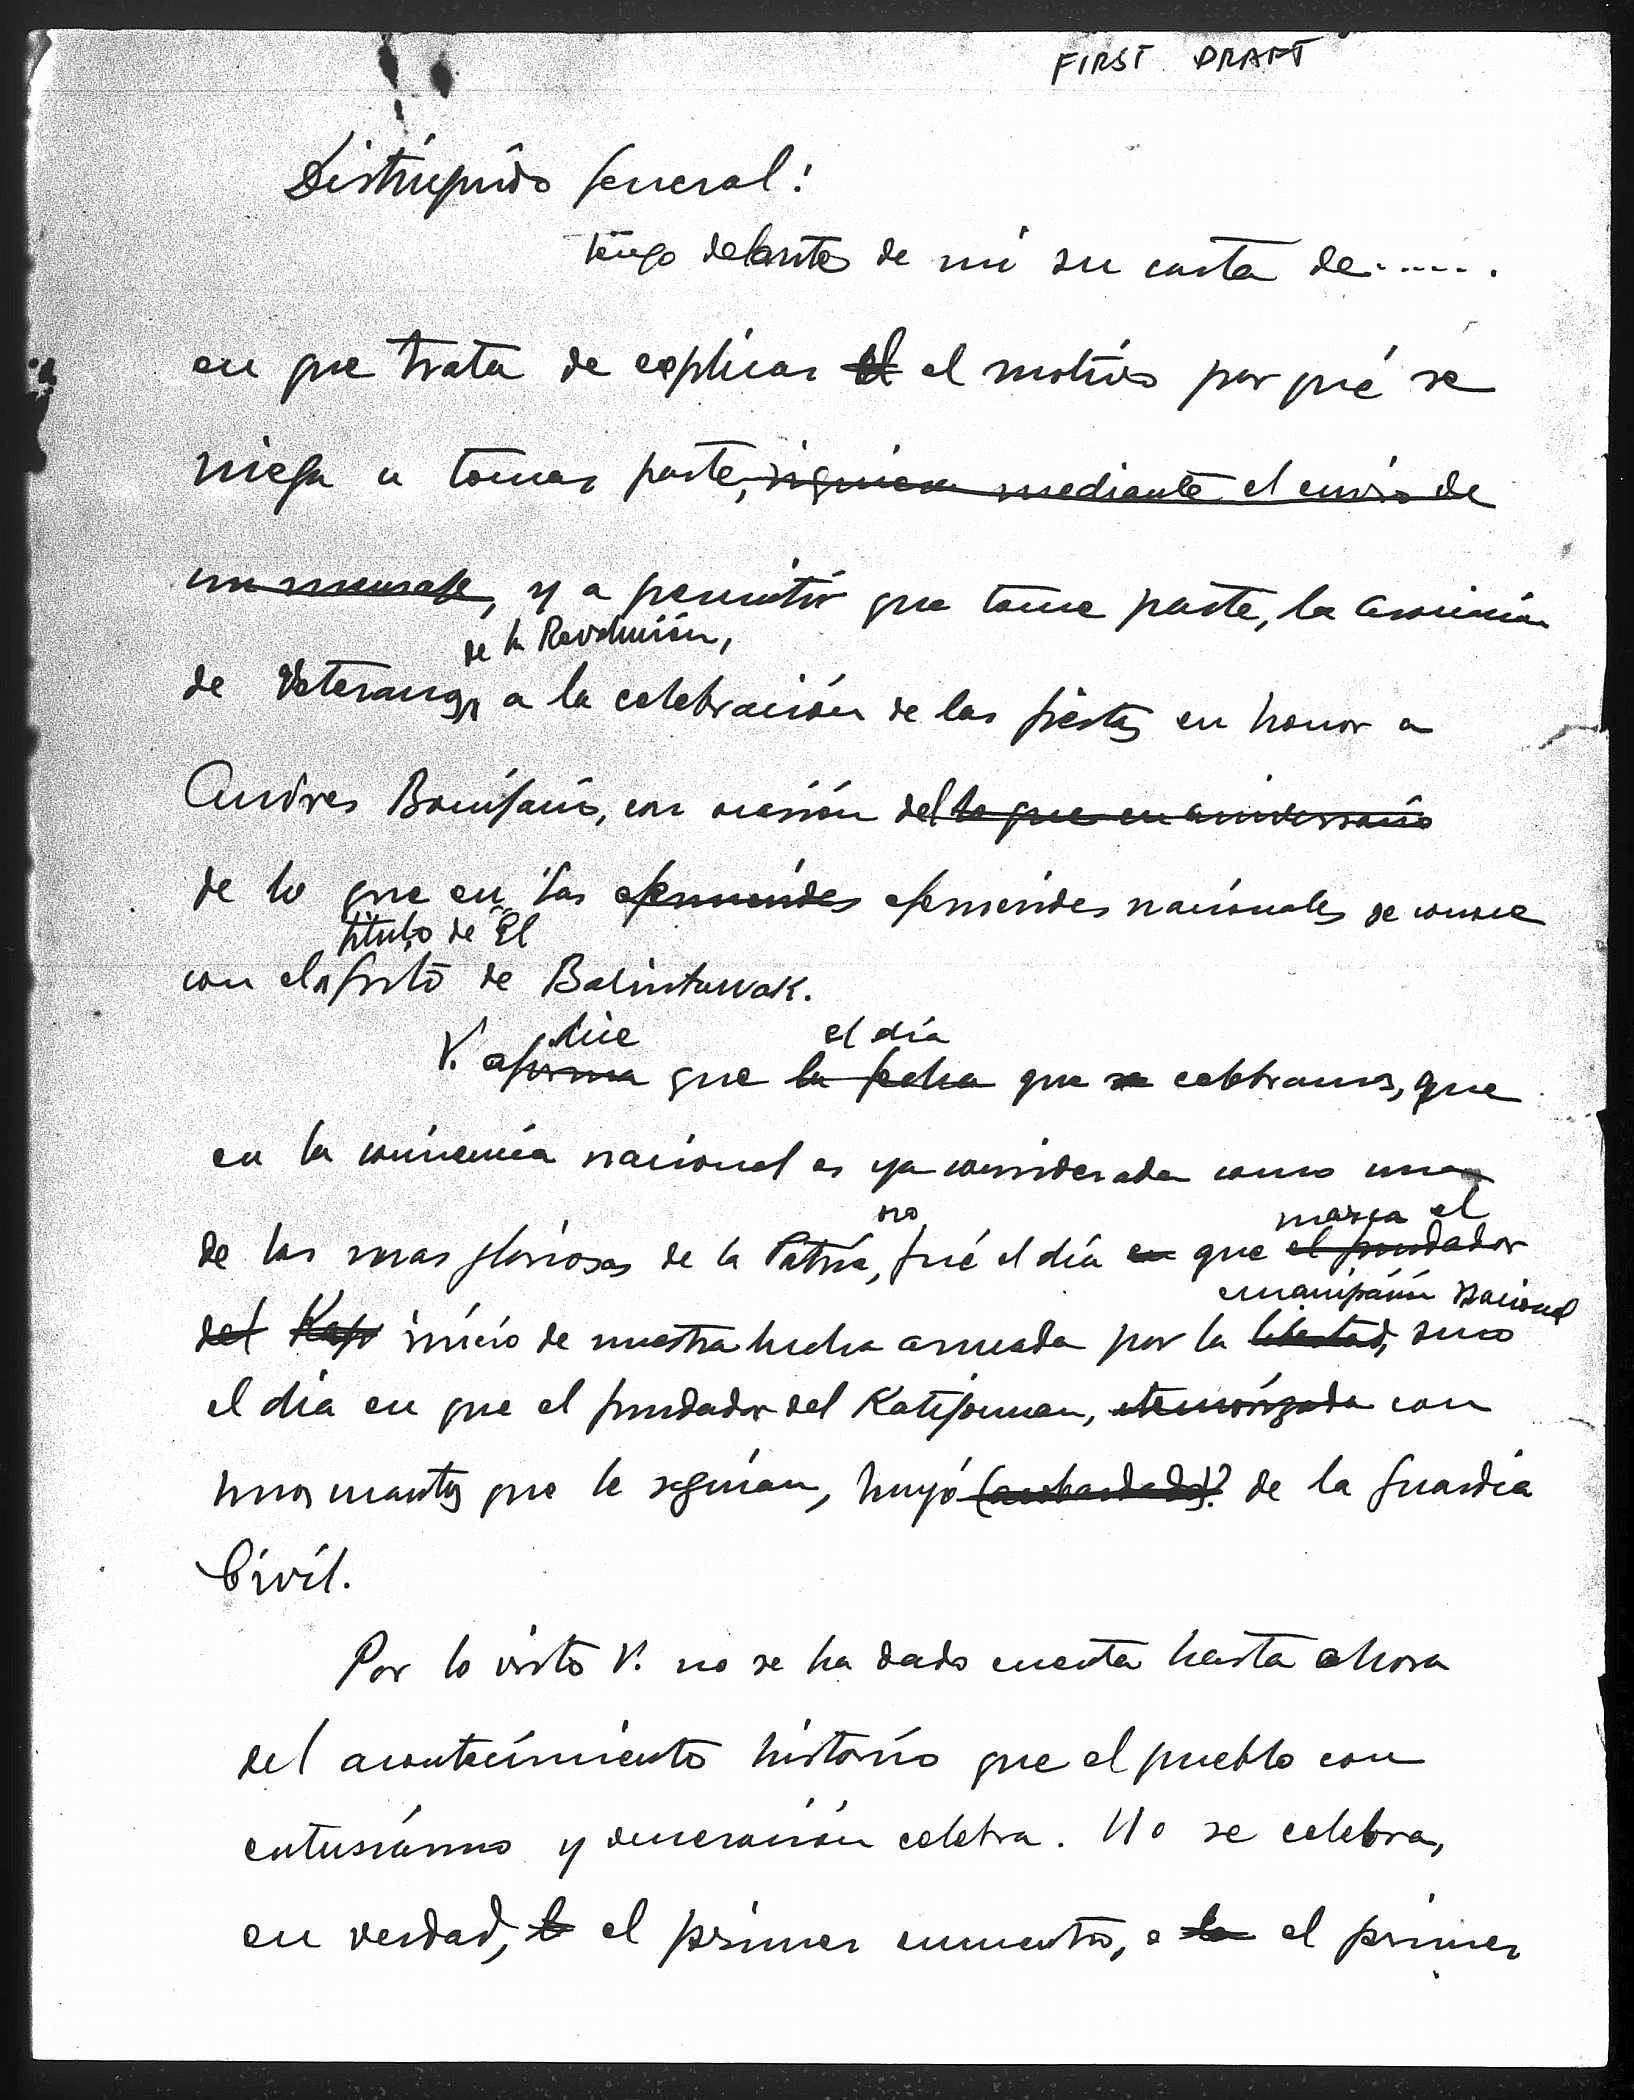 FIRST DRAFT
Distinguido General:
Tengo delante de mi su carta de......
en que trata de explicar el el motivo por qué se
niega a tomar parte, siquiera mediante el envio de
un mensaje, y a permitir que tome parte, la Asociación
de la Revolución,
de Veteranos a la celebración de las fiestas en honor a
Andres Bonifacio, con ocasión del lo que en aniversario
de lo que en las efemerides efemerides nacionales se conoce
título de "El
con el grito de Balintawak.
dice el día
V. afirma que la fecha que se celebramos, que
en la conciencia nacional es ya considerada como una
no marca el
de las mas gloriosas de la Patria, fué el día en que el fundador
emancipación nacional
del Kap inicio de nuestra lucha armada por la libertad, sino
el día en que el fundador del Katipunan, atemorizado con
unos cuantos que le seguían, huyó (acobardado)? de la Guardia
Civil.
Por lo visto V. no se ha dado cuenta hasta ahora
del acontecimiento historico que el pueblo con
entusiasmo y veneración celebra. No se celebra,
en verdad, el primer encuentro, o la el primer